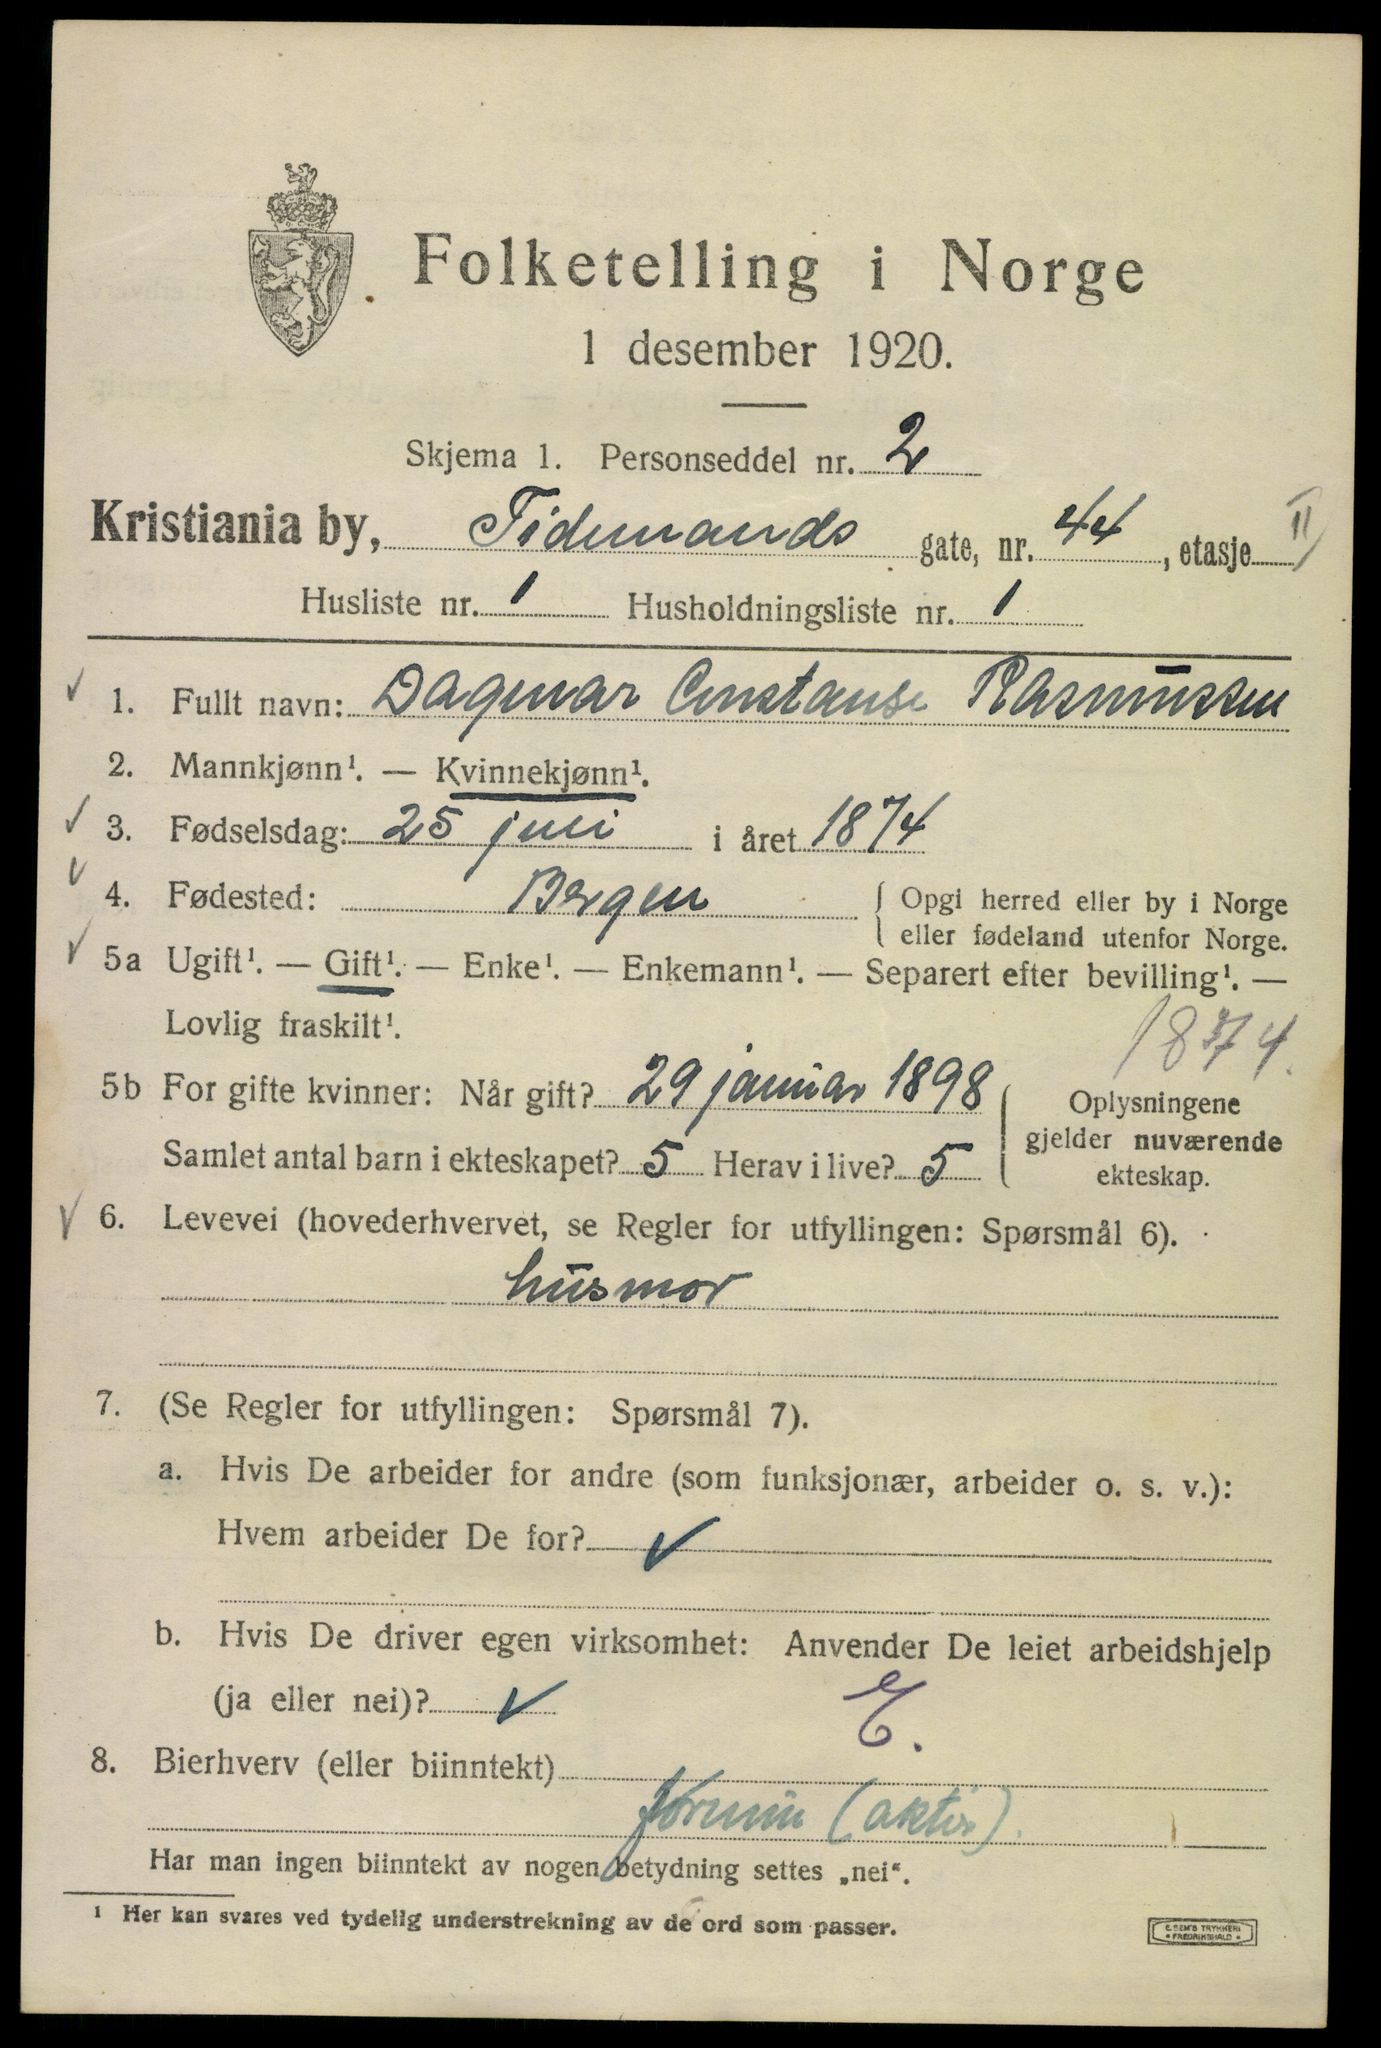 Folketelling i Norge
1 desember 1920.
Skjema 1. Personseddel nr. 2
Kristiania by, Tidemands gate, nr. 44, etasje II
Husliste nr. 1 Husholdningsliste nr. 1
1. Fullt navn: Dagmar Constanse Rasmussen
2. Mannkjønn¹. — Kvinnekjønn¹.
3. Fødselsdag: 25 juli i året 1874
4. Fødested: Bergen { Opgi herred eller by i Norge
eller fødeland utenfor Norge.
5a Ugift¹. — Gift¹. — Enke¹. — Enkemann¹. — Separert efter bevilling¹. —
Lovlig fraskilt¹. 1874.
5b For gifte kvinner: Når gift? 29 januar 1898 { Oplysningene
gjelder nuværende
ekteskap.
Samlet antal barn i ekteskapet? 5 Herav i live? 5
6. Levevei (hovederhvervet, se Regler for utfyllingen: Spørsmål 6).
husmor
7. (Se Regler for utfyllingen: Spørsmål 7).
a. Hvis De arbeider for andre (som funksjonær, arbeider o. s. v.):
Hvem arbeider De for? ✓
b. Hvis De driver egen virksomhet: Anvender De leiet arbeidshjelp
(ja eller nei)? ✓ E.
8. Bierhverv (eller biinntekt)
Formue (aktier).
Har man ingen biinntekt av nogen betydning settes „nei“.
¹ Her kan svares ved tydelig understrekning av de ord som passer.
E. SEM'S TRYKKERI
• FREDRIKSHALD •